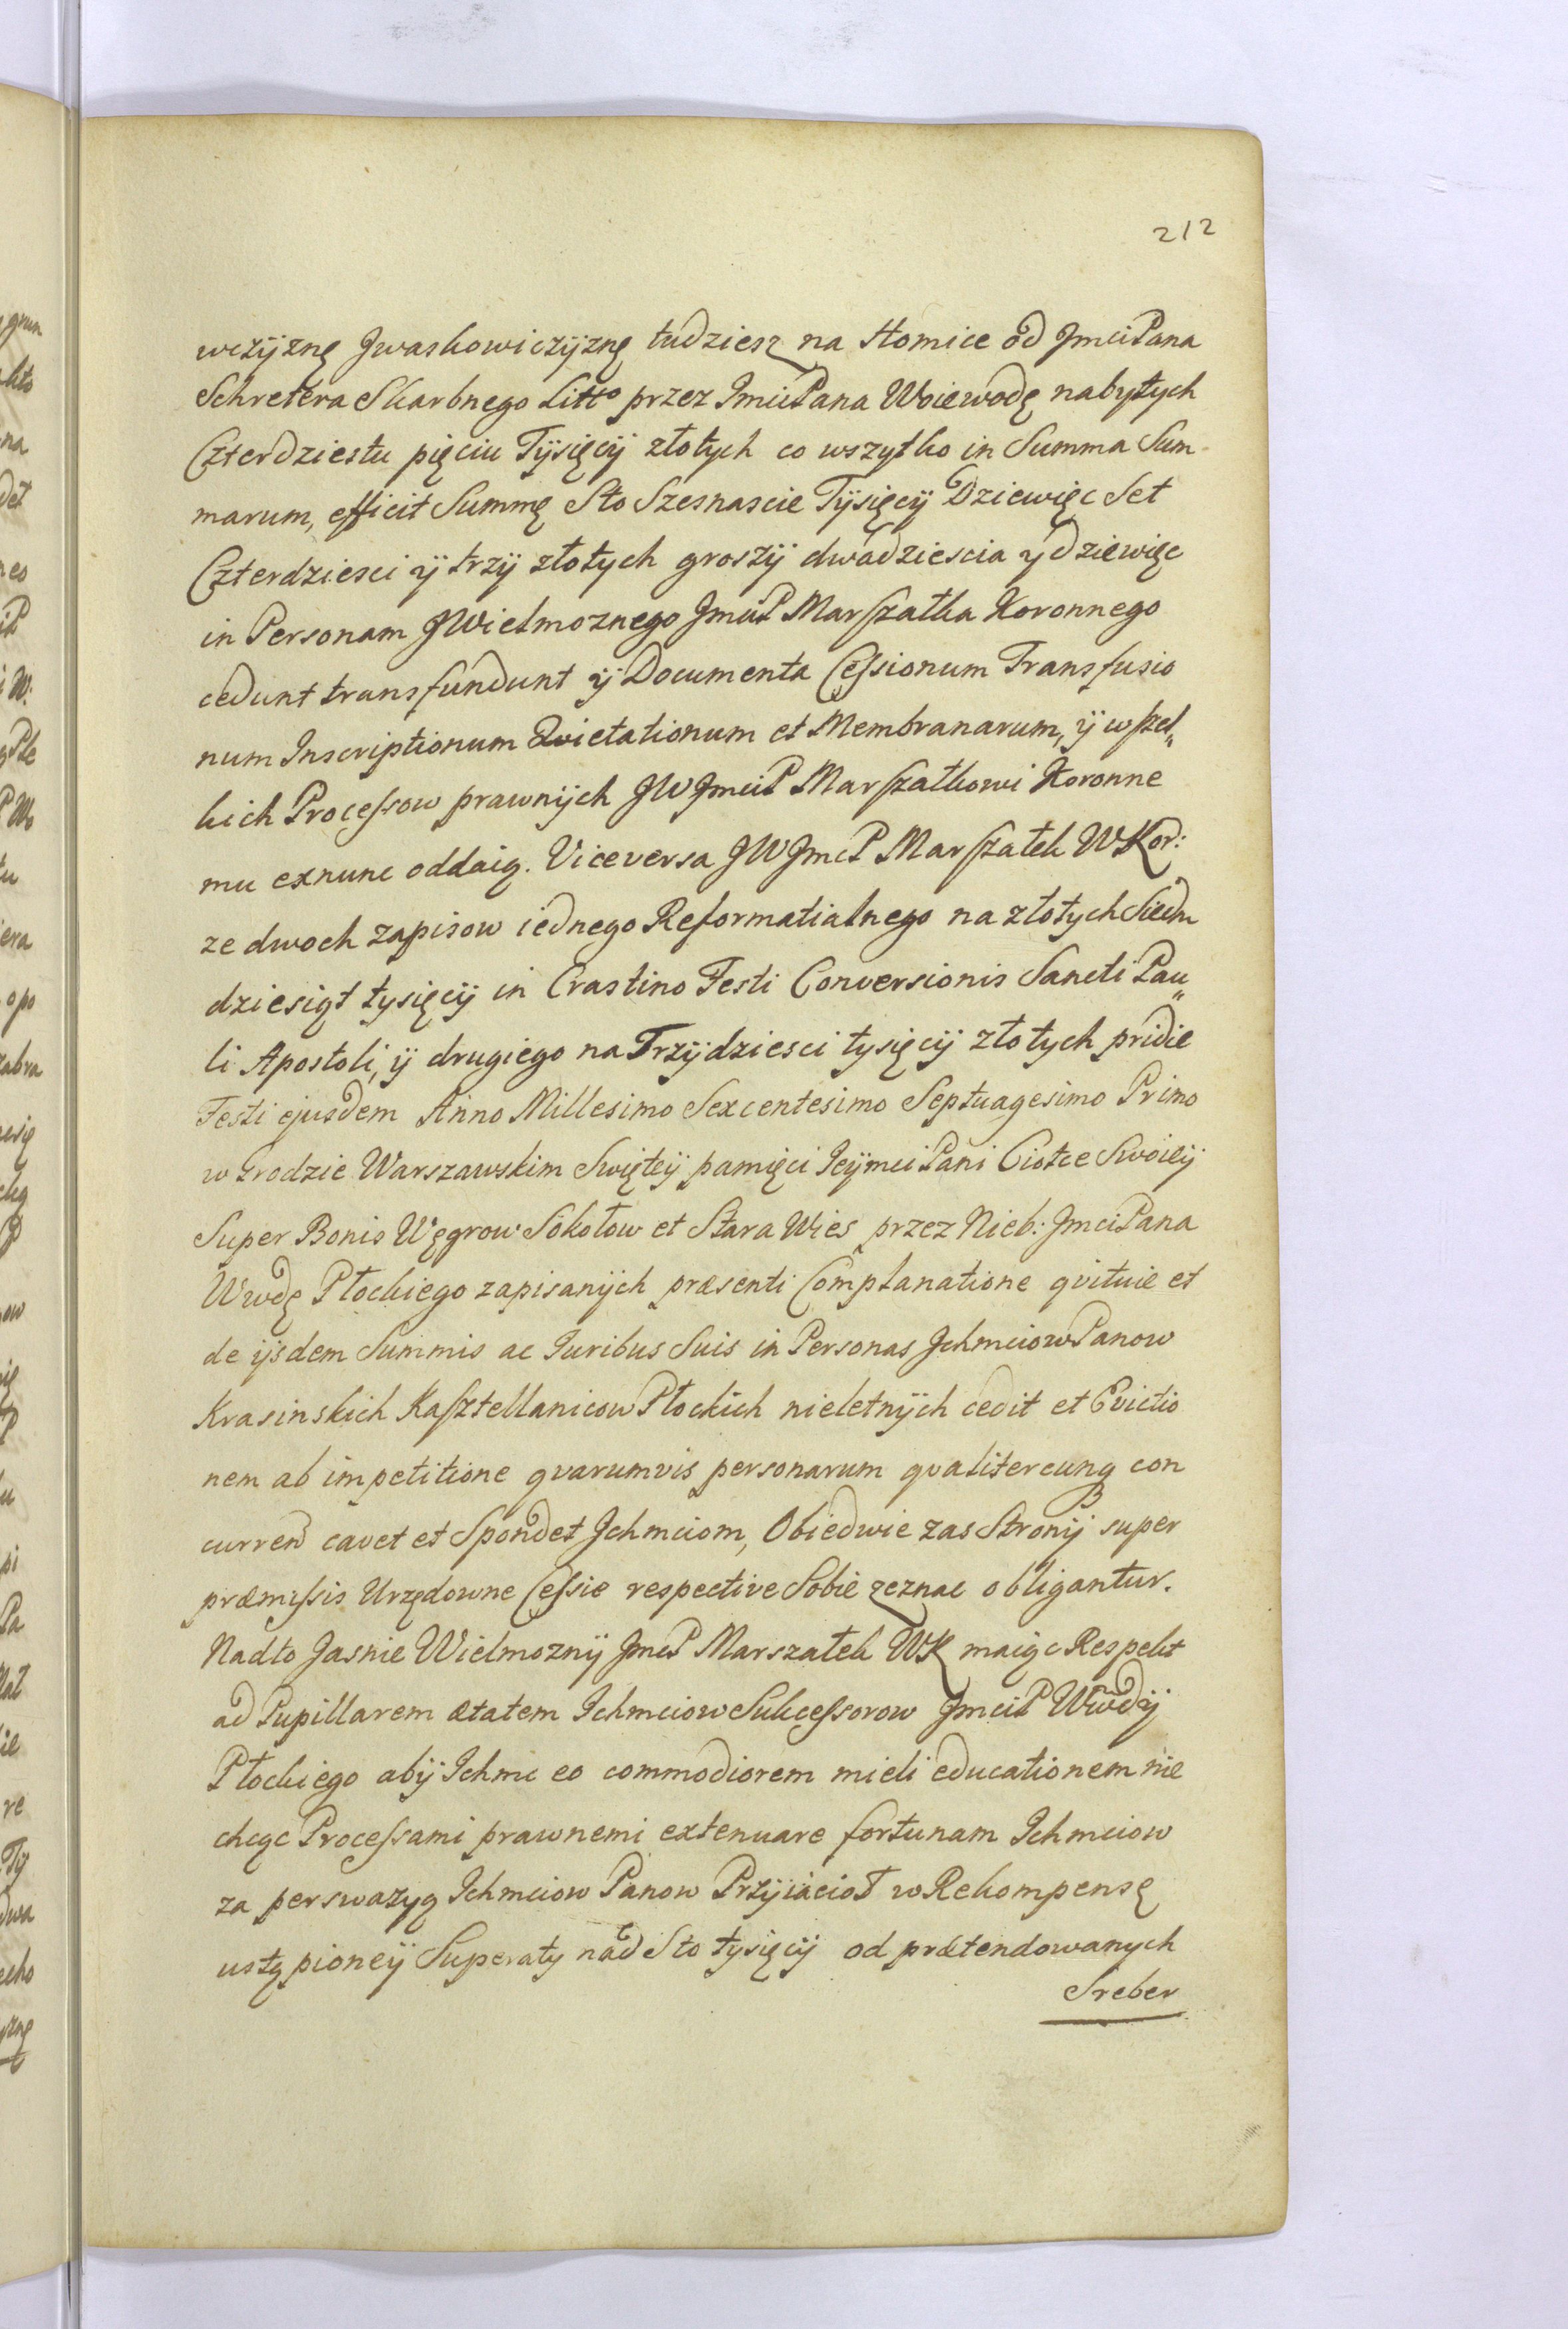 212
wczÿznę Jwaskowiczÿznę tudziesz na Słomice od JmciPana
Schretera Skarbnego Litto przez JmciPana Woiewodę nabytych
Czterdziestu pięciu Tÿsięcÿ złotych co wszytko in Summa Sum-
marum, efficit Summę Sto Szesnascie Tÿsięcÿ Dziewięc Set
Czterdziesci ÿ trzÿ złotych groszÿ dwadziescia y dziewięc
in Personam JWielmoznego JmciP Marszałka Koronnego
cedunt transfundunt ÿ Documenta Cessionum Transfusio
num Inscriptionum Qvietationum et Membranarum, ÿ wszel„
kich Processow prawnÿch JWJmciP Marszałkowi Koronne
mu exnunc oddaią. Viceversa JWJmcP Marszałek WKor:
ze dwoch zapisow iednego Reformatialnego na złotych Siedm
dziesiąt tysięcÿ in Crastino Festi Conversionis Sancti Pau„
li Apostoli, ÿ drugiego na Trzÿdziesci tysięcÿ złotych pridie
Festi ejusdem Anno Millesimo Sexcentesimo Septuagesimo Primo
w Grodzie Warszawskim Swięteÿ pamięci Jeÿmci Pani Ciotce Swoieÿ
Super Bonis Węgrow Sokołow et Stara Wies przez Nieb: JmciPana
Wwdę Płockiego zapisanÿch præsenti Complanatione qvituie et
de ijsdem Summis ac Juribus Suis in Personas JchmciowPanow
Krasinskich Kasztellanicow Płockich nieletnÿch cedit et Evictio
nem ab impetitione qvarumvis personarum qvalitercunq con
curren cavet et Spondet Jchmciom, Obiedwie zas Stronÿ super
præmissis Urzędowne Cessie respective Sobie zeznac obligantur.
Nadto Jasnie Wielmoznÿ JmcP Marszałek WK maiąc Respekt
ad Pupillarem ætatem Jchmciow Sukcessorow JmciP Wwdÿ
Płockiego abÿ Jchmc eo commodiorem mieli educationem nie
chcąc Processami prawnemi extenuare fortunam Jchmciow
za perswazyą Jchmciow Panow Przÿiacioł w Rekompensę
ustąpioneÿ Superaty nad Sto tysięcÿ od prætendowanych
Sreber